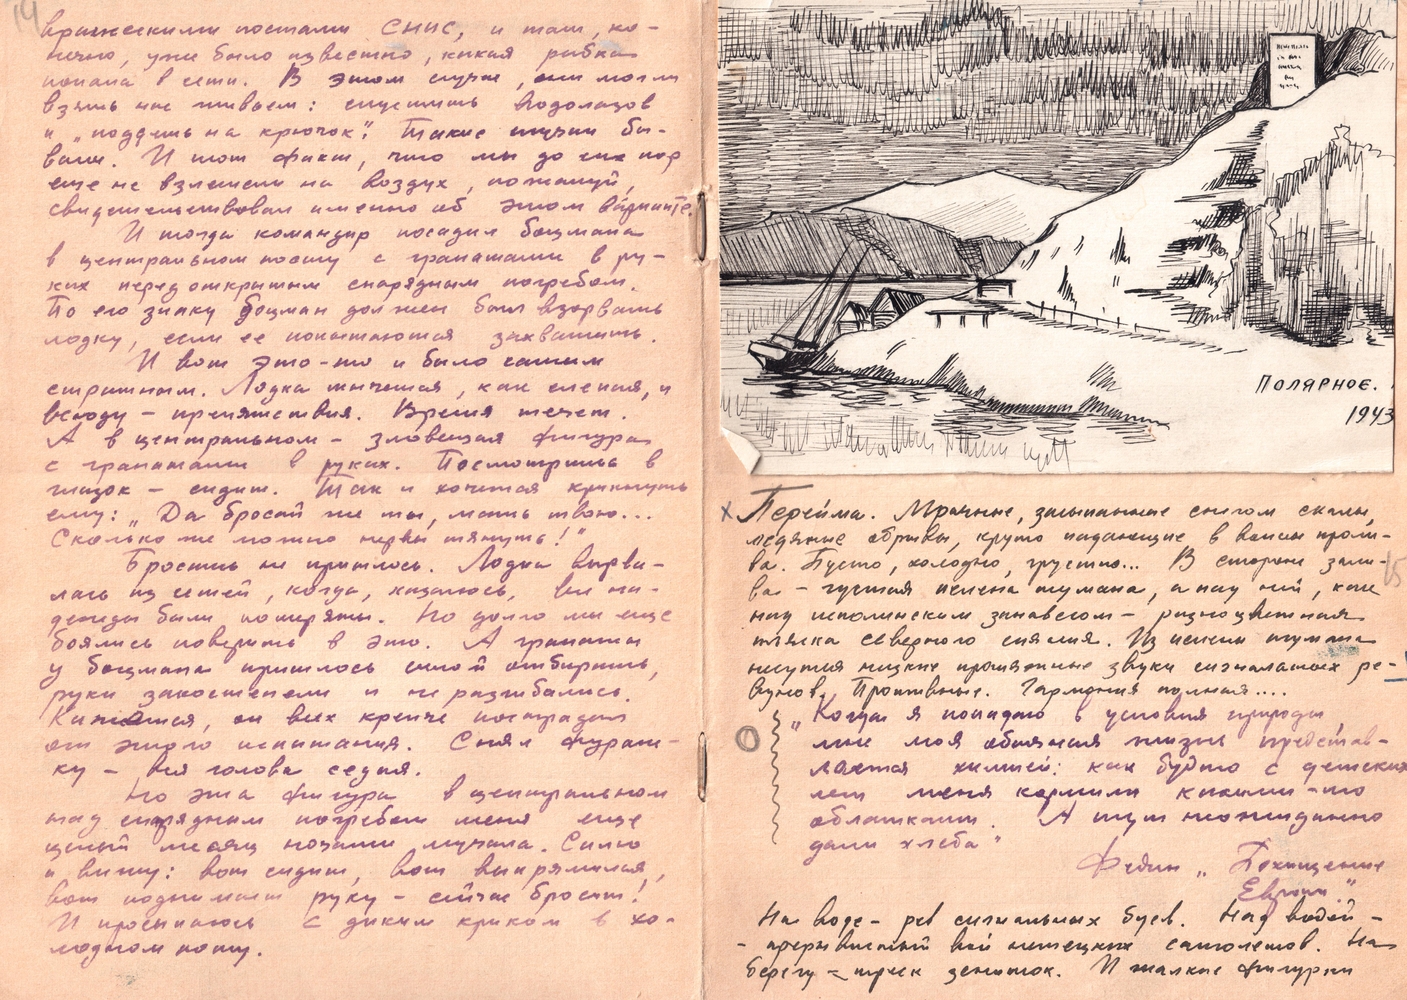 14
вражескими постами СНИС, и там, ко-
нечно, уже было известно, какая рыбка
попала в сети. В этом случае, они могли
взять нас живьем: спустить водолазов
и „поддеть на крючок“. Такие случаи бы-
вали. И тот факт, что мы до сих пор
еще не взлетели на воздух, пожалуй,
свидетельствовал именно об этом варианте.
И тогда командир посадил боцмана
в центральном посту с гранатами в ру-
ках перед открытым снарядным погребом.
По его знаку боцман должен был взорвать
лодку, если ее попытаются захватить.
И вот это-то и было самым
страшным. Лодка тычется, как слепая, и
всюду – препятствия. Время течет.
А в центральном – зловещая фигура
с гранатами в руках. Посмотришь в
глазок – сидит. Так и хочется крикнуть
ему: „Да бросай же ты, мать твою...
Сколько же можно нервы тянуть!“
Бросить не пришлось. Лодка вырва-
лась из сетей, когда, казалось, все на-
дежды были потеряны. Но долго мы еще
боялись поверить в это. А гранаты
у боцмана пришлось силой отбирать,
руки закостенели и не разгибались.
Кажется, он всех крепче пострадал
от этого испытания. Снял фураж-
ку – вся голова седая.
Но эта фигура в центральном
над снарядным погребом меня еще
целый месяц ночами мучала. Сплю
и вижу: вот сидит, вот выпрямился,
вот поднимает руку – сейчас бросит!
И просыпаюсь с диким криком в хо-
лодном поту.
ПОЛЯРНОЕ.
1943
х Перейма. Мрачные, засыпанные снегом скалы,
ледяные обрывы, круто падающие в волны проли-
ва. Пусто, холодно, грустно... В стороне зали-
ва – густая пелена тумана, а над ней, как
над исполинским занавесом – разноцветная
пляска северного сияния. Из пелены тумана
несутся низкие протяжные звуки сигнальных ре-
вунов. Противные. Гармония полная....
15
„Когда я попадаю в условия природы,
мне моя обычная жизнь представ-
ляется химией: как будто с детских
лет меня кормили какими-то
облатками. А тут неожиданно
дали хлеба“
Федин „Похищение
Европы“
На воде – рев сигнальных буев. Над водой –
– прерывистый вой немецких самолетов. На
берегу – треск зениток. И жалкие фигурки